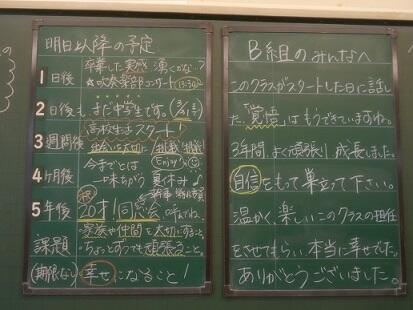 明日以降の予定
1日後 卒業した実感 湧くかな?
☆吹奏楽部コンサート 13:30〜
2日後も まだ中学生です。(3/31まで)
3週間後 高校生活スタート!
出会いを大切に 挑戦
4ヶ月後 今までとは 一味ちがう 夏休み Enjoy!
5年後 祝 20才!同窓会 呼んでね。
課題 ・家族や仲間を大切にすること。
・ちょっとずつでも頑張ること。
(期限なし) 幸せになること!
B組のみんなへ
このクラスがスタートした日に話し
た、「覚悟」はもうできていますね。
3年間、よく頑張り成長しました。
自信をもって巣立って下さい。
温かく、楽しいこのクラスの担任
をさせてもらい、本当に幸せでした。
ありがとうございました。